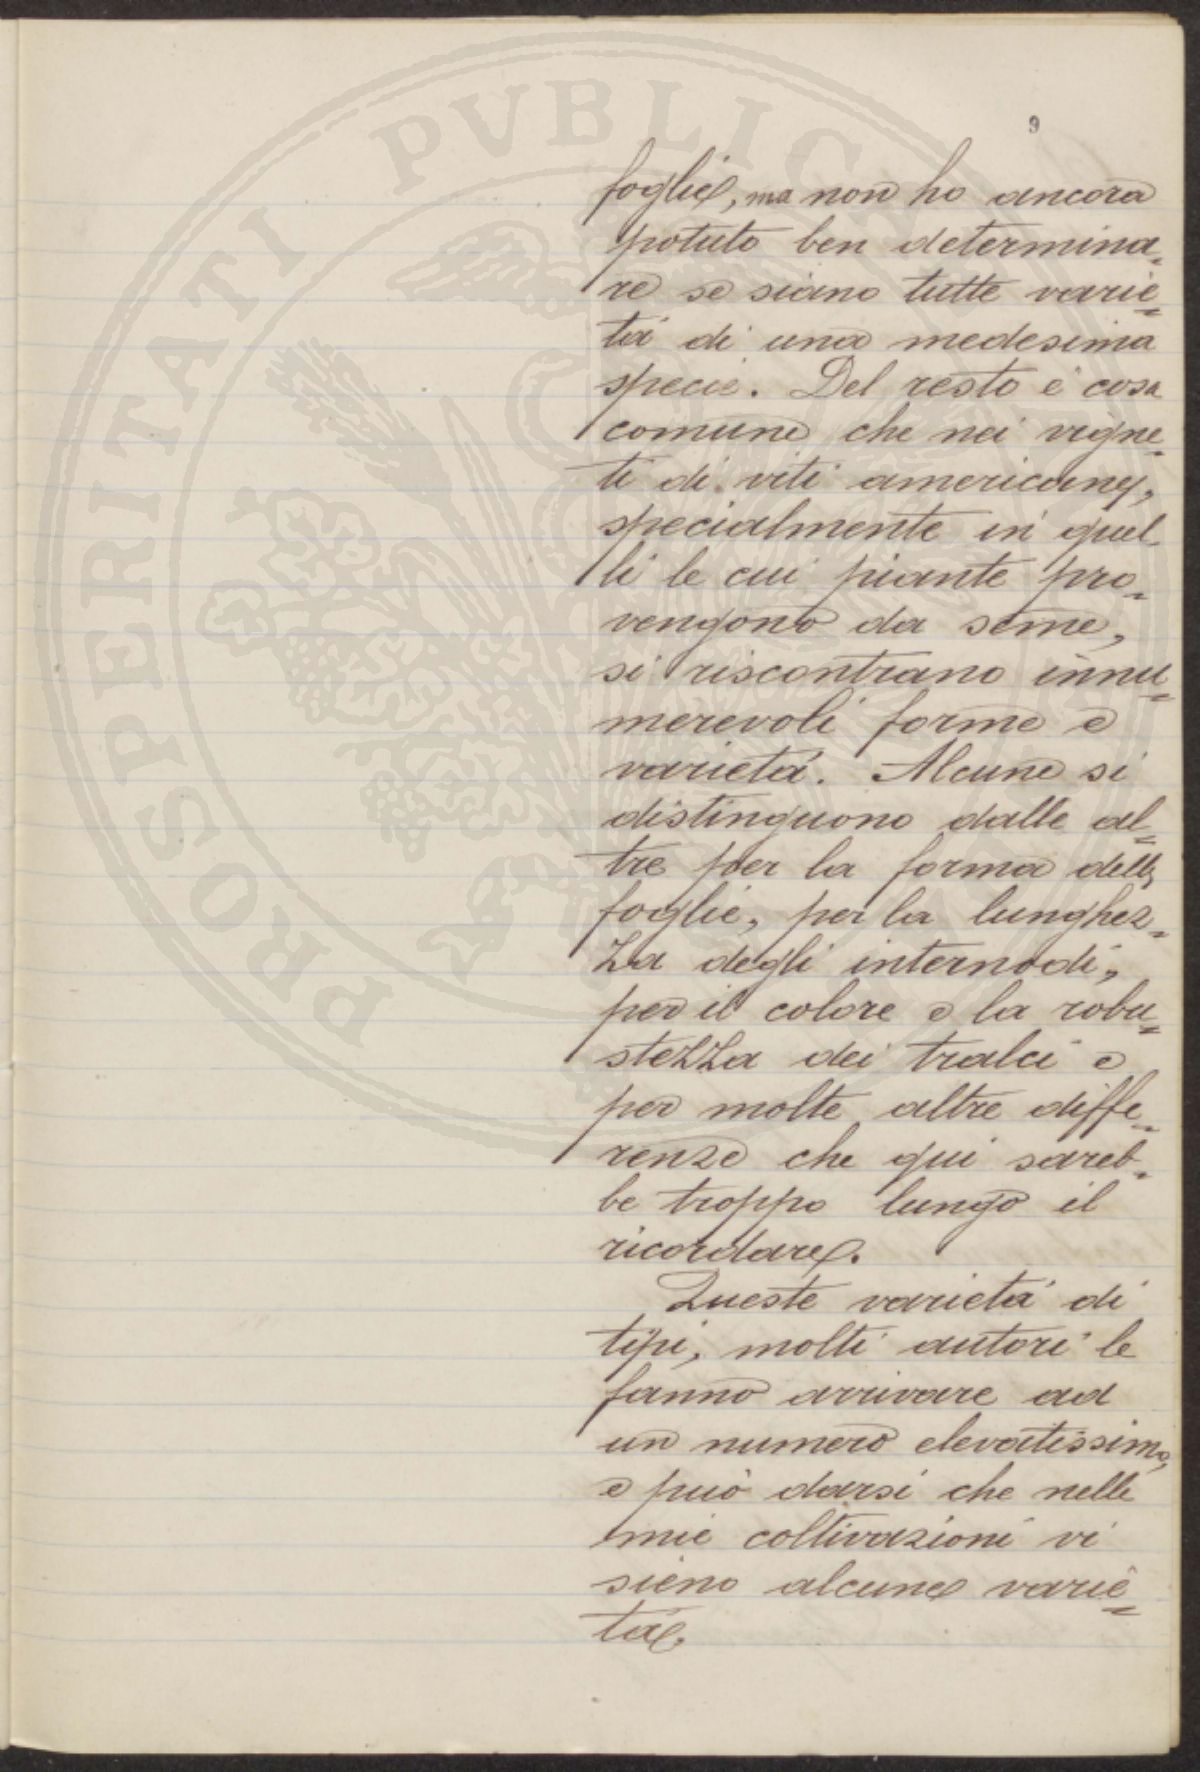 PROSPERITATI PVBLIC
9
foglie, ma non ho ancora
potuto ben determina=
re se siano tutte varie=
tà di una medesima
specie. Del resto è cosa
comune che nei vigne=
ti di viti americane,
specialmente in quel=
li le cui piante pro=
vengono da seme,
si riscontrano innu=
merevoli forme e
varietà. Alcune si
distinguono dalle al=
tre per la forma delle
foglie, per la lunghez=
za degli internodi,
per il colore e la robu=
stezza dei tralci e
per molte altre diffe=
renze che qui sareb=
be troppo lungo il
ricordare.
Queste varietà di
tipi, molti autori le
fanno arrivare ad
un numero elevatissimo,
e può darsi che nelle
mie coltivazioni vi
sieno alcune varie=
tà.